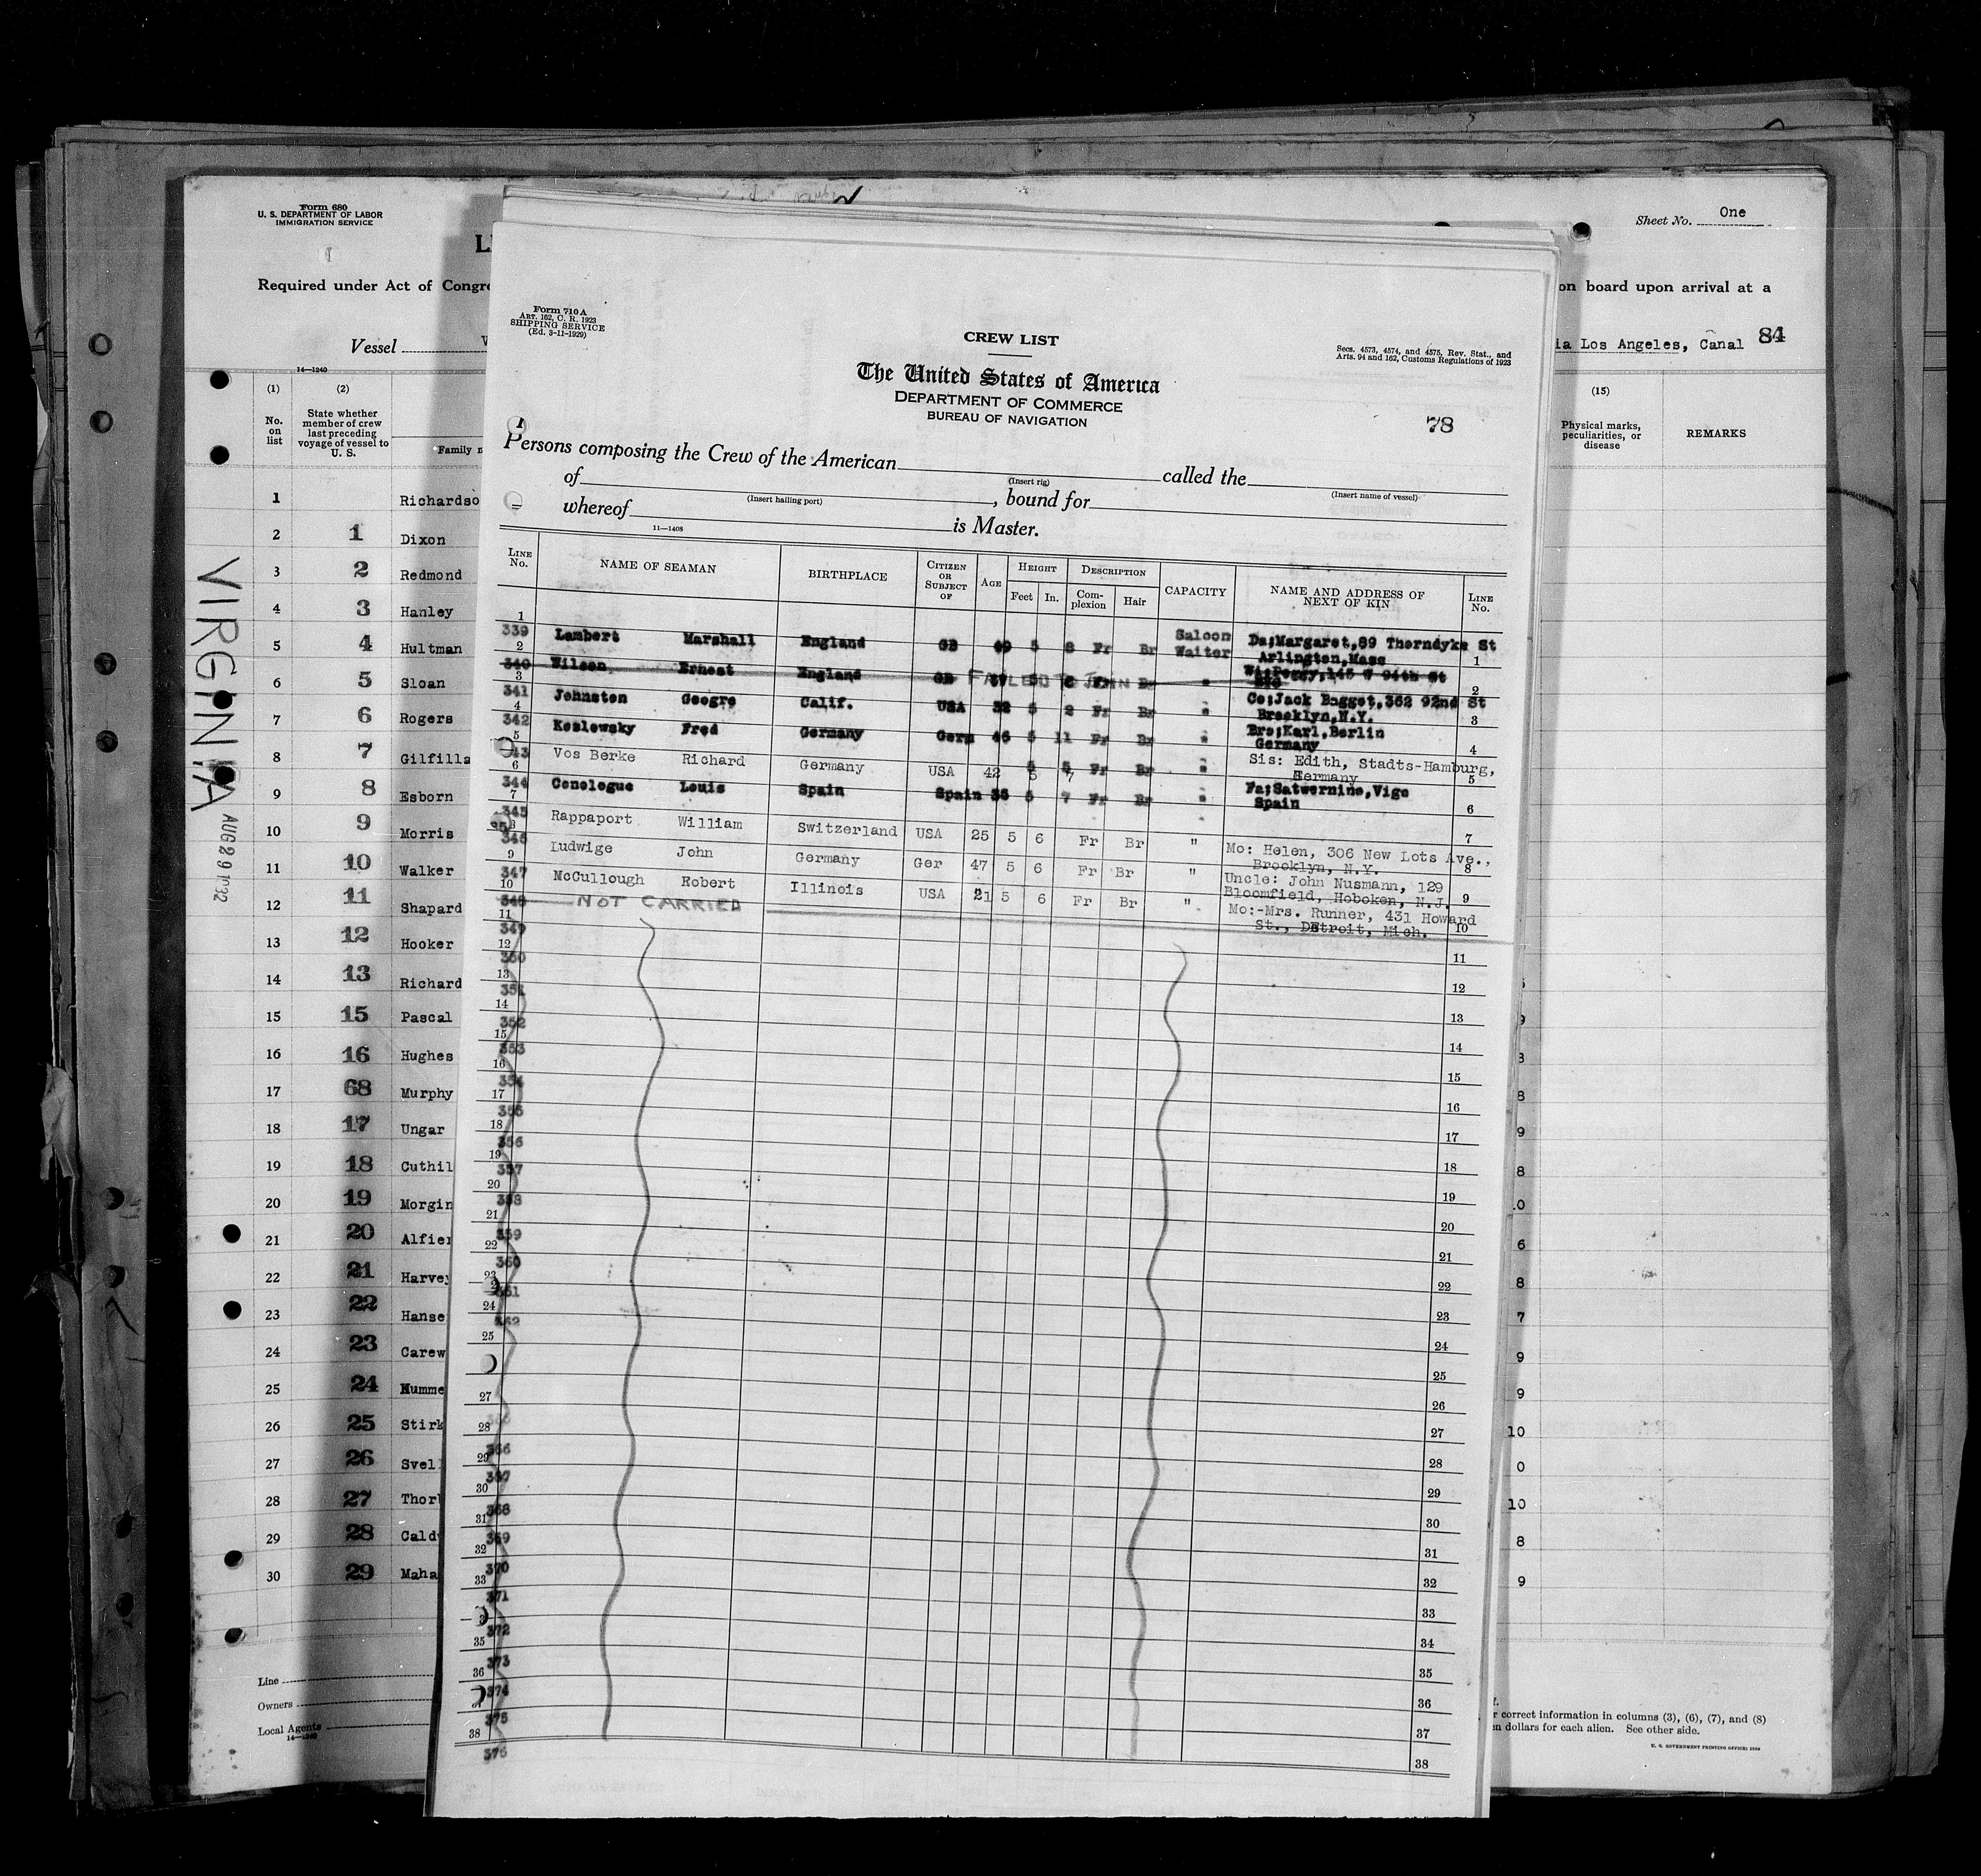 Form 680
U. S. DEPARTMENT OF LABOR
IMMIGRATION SERVICE
Sheet No. One
Required under Act of Congre
on board upon arrival at a
Vessel
ia Los Angeles, Canal 84
14—1240
(1) (2) (15)
No. on list
State whether member of crew last preceding voyage of vessel to U. S.
Family n
Physical marks, peculiarities, or disease
REMARKS
1 Richardso
2 1 Dixon
3 2 Redmond
4 3 Hanley
5 4 Hultman
6 5 Sloan
7 6 Rogers
8 7 Gilfilla
9 8 Esborn
10 9 Morris
11 10 Walker
12 11 Shapard
13 12 Hooker
14 13 Richard
15 15 Pascal
16 16 Hughes
17 68 Murphy
18 17 Ungar
19 18 Cuthil
20 19 Morgin
21 20 Alfier
22 21 Harvey
23 22 Hanse
24 23 Carew
25 24 Humme
26 25 Stirk
27 26 Svel
28 27 Thor
29 28 Cald
30 29 Maha
VIRGINIA
AUG 29 1932
Line
Owners
Local Agents
14—1240
r correct information in columns (3), (6), (7), and (8)
en dollars for each alien. See other side.
U. S. GOVERNMENT PRINTING OFFICE:
Form 710 A
ART. 162, C. R. 1923
SHIPPING SERVICE
(Ed. 3-11-1929)
CREW LIST
Secs. 4573, 4574, and 4575, Rev. Stat., and
Arts. 94 and 162, Customs Regulations of 1923
The United States of America
DEPARTMENT OF COMMERCE
BUREAU OF NAVIGATION
78
Persons composing the Crew of the American called the
(Insert rig) (Insert name of vessel)
of , bound for
(Insert hailing port)
whereof is Master.
11—1408
LINE No. NAME OF SEAMAN BIRTHPLACE CITIZEN OR SUBJECT OF AGE HEIGHT Feet In. DESCRIPTION Complexion Hair CAPACITY NAME AND ADDRESS OF NEXT OF KIN LINE No.
339 Lambert Marshall England GB 49 5 8 Fr Br Saloon Waiter Da;Margaret,89 Thorndyke St
Arlington,Mass
340 Wilson Ernest England GB FAILED TO JOIN Br " Wi;Peggy,145 W 94th St
341 Johnston Geogre Calif. USA 32 5 2 Fr Br " Co;Jack Bagget,362 92nd St
Brooklyn,N.Y.
342 Koslowsky Fred Germany Germ 46 5 11 Fr Br " Bro;Karl,Berlin
Germany
343 Vos Berke Richard Germany USA 42 5 7 Fr Br " Sis: Edith, Stadts-Hamburg,
Germany
344 Conologue Louis Spain Spain 36 5 7 Fr Br " Fa;Satwernino,Vigo
Spain
345 Rappaport William Switzerland USA 25 5 6 Fr Br " Mo: Helen, 306 New Lots Ave.,
Brooklyn, N.Y.
346 Ludwige John Germany Ger 47 5 6 Fr Br " Uncle: John Nusmann, 129
Bloomfield, Hoboken, N.J.
347 McCullough Robert Illinois USA 21 5 6 Fr Br " Mo:-Mrs. Runner, 431 Howard
St., Detroit, Mich.
348 NOT CARRIED
349
350
351
352
353
354
355
356
357
358
359
360
361
362
366
367
368
369
370
371
372
373
374
375
376